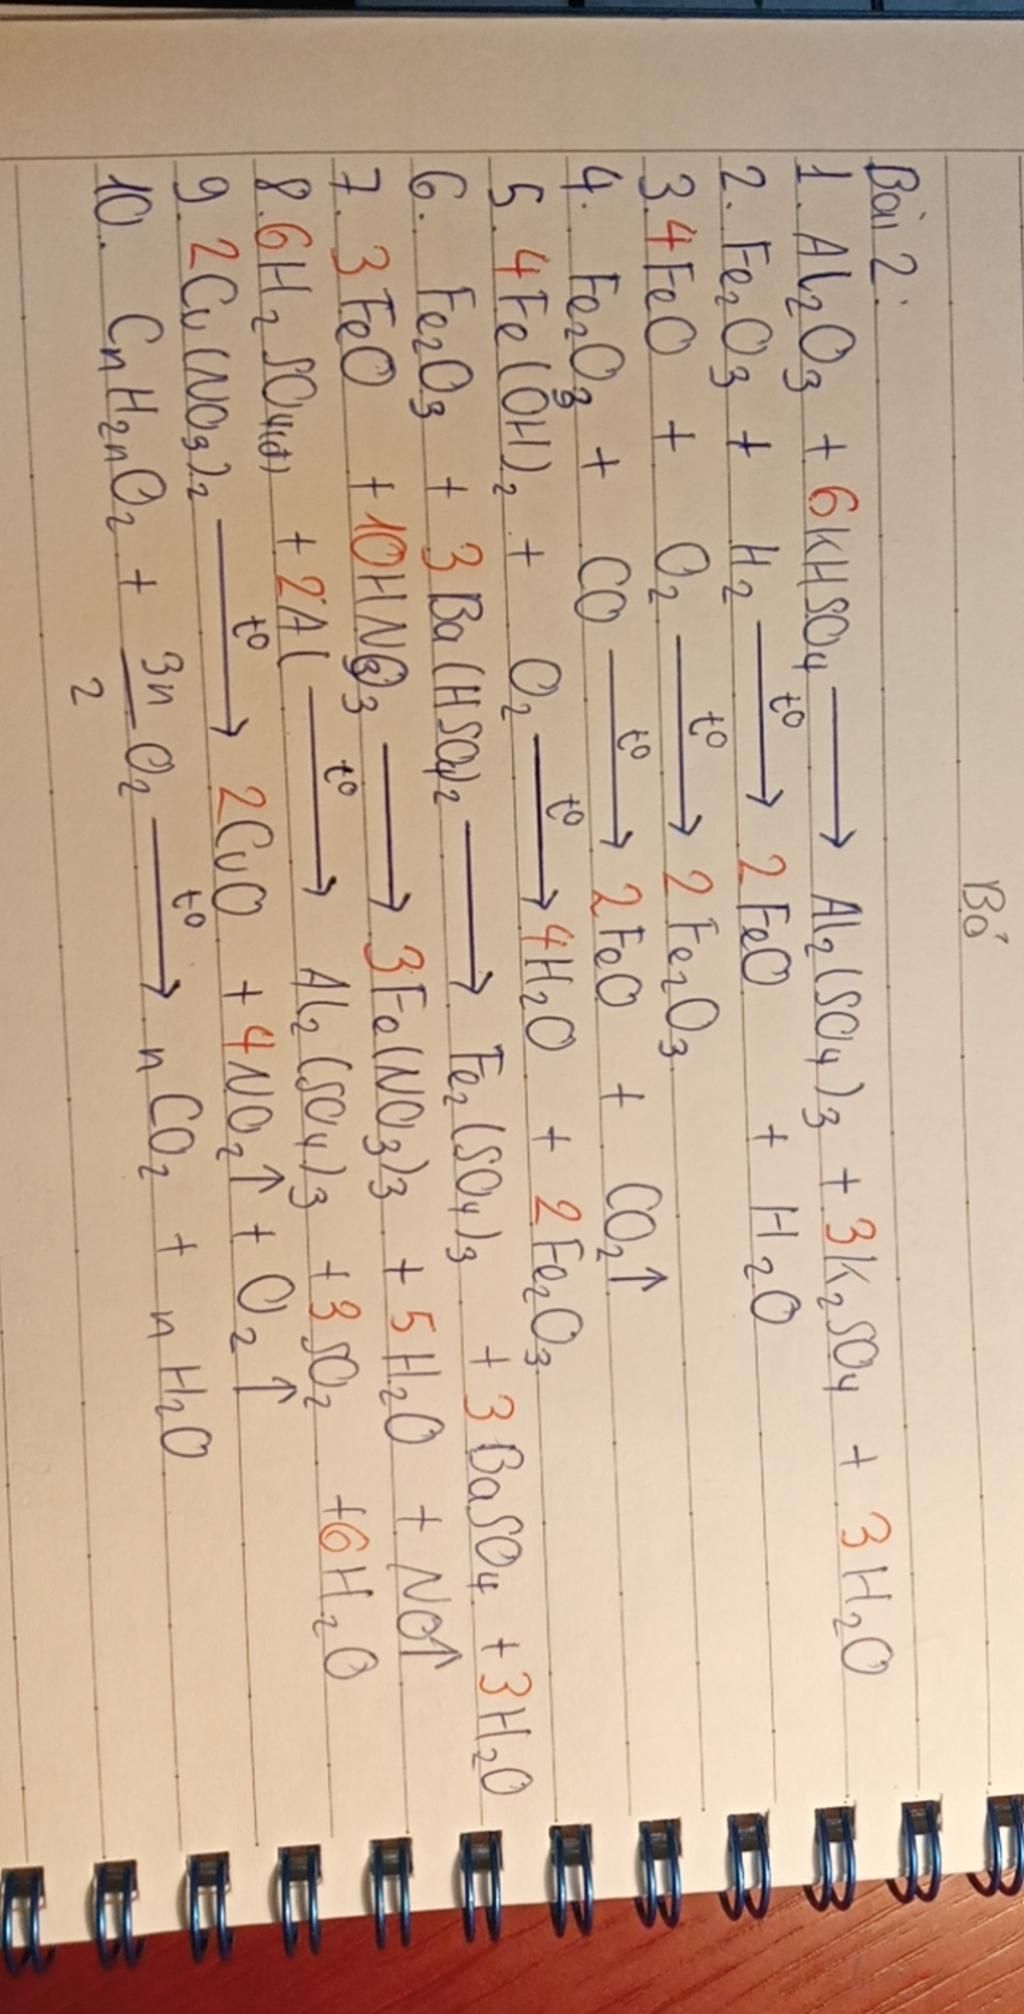 Bỏ
Bài 2:
1. Al₂O₃ + 6KHSO₄ ⟶ Al₂(SO₄)₃ + 3K₂SO₄ + 3H₂O
2. Fe₂O₃ + H₂ ⟶ t⁰ 2FeO + H₂O
3. 4FeO + O₂ ⟶ t⁰ 2Fe₂O₃
4. Fe₂O₃ + CO ⟶ t⁰ 2FeO + CO₂↑
5. 4Fe(OH)₂ + O₂ ⟶ t⁰ 4H₂O + 2Fe₂O₃
6. Fe₂O₃ + 3Ba(HSO₄)₂ ⟶ Fe₂(SO₄)₃ + 3BaSO₄ + 3H₂O
7. 3FeO + 10HNO₃ ⟶ 3Fe(NO₃)₃ + 5H₂O + NO↑
8. 6H₂SO₄(đ) + 2Al ⟶ t⁰ Al₂(SO₄)₃ + 3SO₂ + 6H₂O
9. 2Cu(NO₃)₂ ⟶ t⁰ 2CuO + 4NO₂↑ + O₂↑
10. CnH2nO₂ + 3n/2 O₂ ⟶ t⁰ nCO₂ + nH₂O